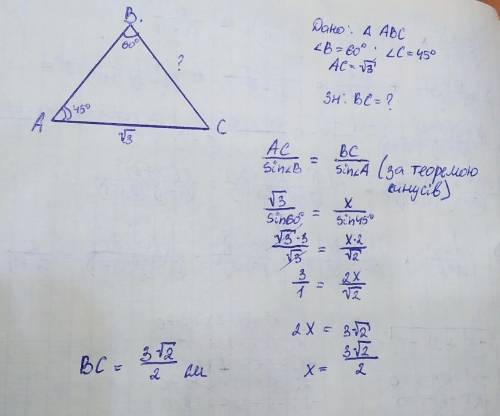 B.
60°
?
45°
A
√3
C
Дано: Δ ABC
∠B = 60°; ∠C = 45°
AC = √3
Зн: BC = ?
AC/sin∠B = BC/sin∠A (за теоремою синусів)
√3/sin60° = x/sin45°
√3·3/√3 = x·2/√2
3/1 = 2x/√2
2x = 3√2
x = 3√2/2
BC = 3√2/2 см